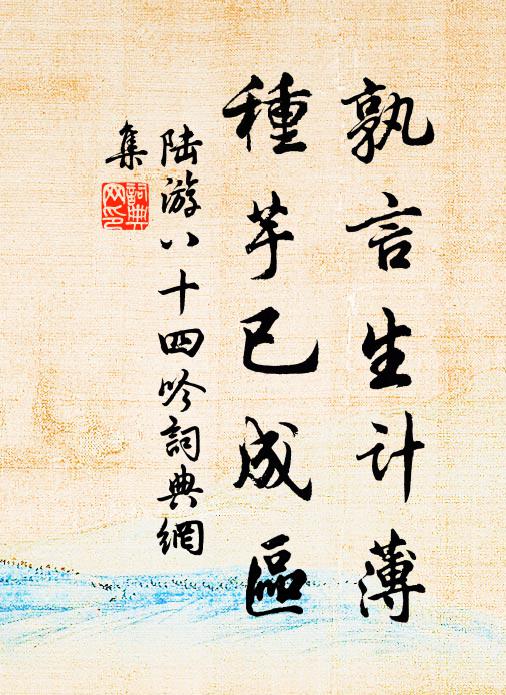 孰言生计薄
種芋已成區
陆游八十四吟詞典網
集
詞典
网印